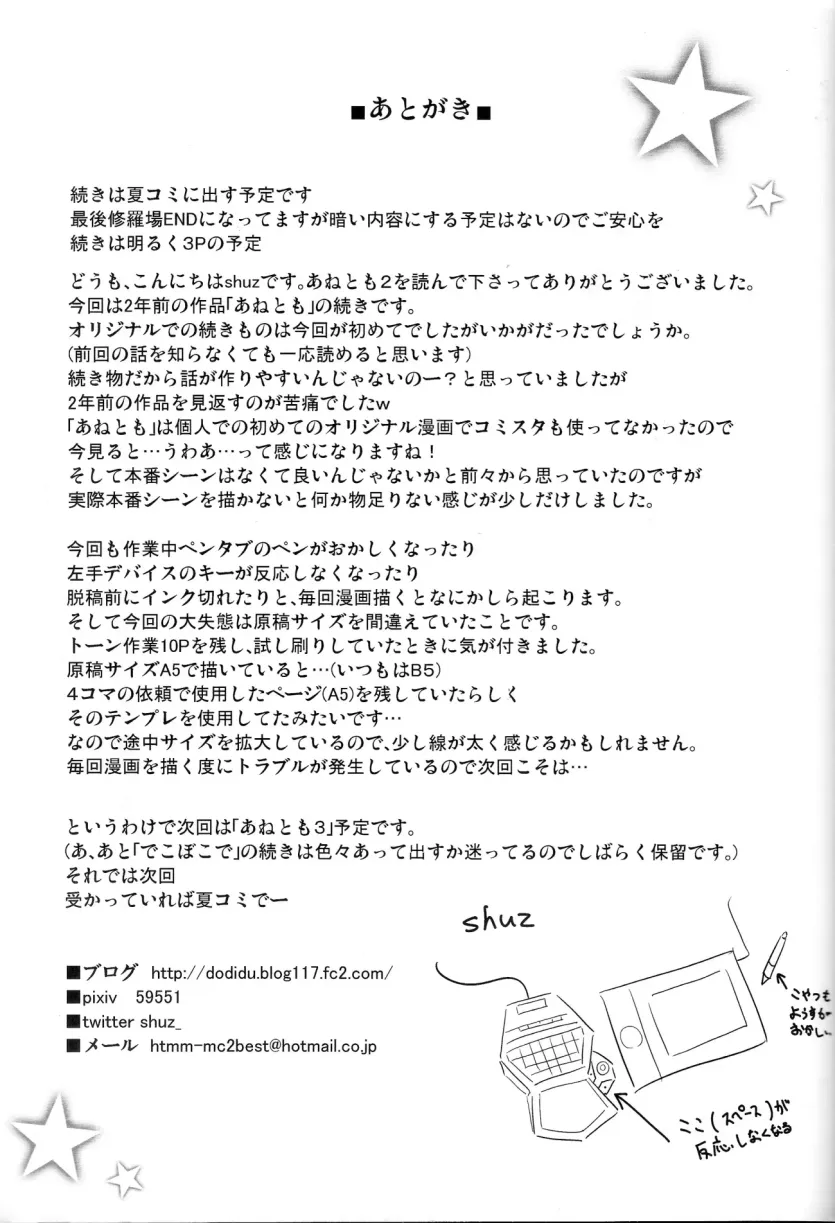 ■あとがき■
続きは夏コミに出す予定です
最後修羅場ENDになってますが暗い内容にする予定はないのでご安心を
続きは明るく3Pの予定
どうも、こんにちはshuzです。あねとも2を読んで下さってありがとうございました。
今回は2年前の作品「あねとも」の続きです。
オリジナルでの続きものは今回が初めてでしたがいかがだったでしょうか。
(前回の話を知らなくても一応読めると思います)
続き物だから話が作りやすいんじゃないのー?と思っていましたが
2年前の作品を見返すのが苦痛でしたw
「あねとも」は個人での初めてのオリジナル漫画でコミスタも使ってなかったので
今見ると…うわあ…って感じになりますね!
そして本番シーンはなくて良いんじゃないかと前々から思っていたのですが
実際本番シーンを描かないと何か物足りない感じが少しだけしました。
今回も作業中ペンタブのペンがおかしくなったり
左手デバイスのキーが反応しなくなったり
脱稿前にインク切れたりと、毎回漫画描くとなにかしら起こります。
そして今回の大失態は原稿サイズを間違えていたことです。
トーン作業10Pを残し、試し刷りしていたときに気が付きました。
原稿サイズA5で描いていると…(いつもはB5)
4コマの依頼で使用したページ(A5)を残していたらしく
そのテンプレを使用してたみたいです…
なので途中サイズを拡大しているので、少し線が太く感じるかもしれません。
毎回漫画を描く度にトラブルが発生しているので次回こそは…
というわけで次回は「あねとも3」予定です。
(あ、あと「でこぼこで」の続きは色々あって出すか迷ってるのでしばらく保留です。)
それでは次回
受かっていれば夏コミでー
shuz
■ブログ http://dodidu.blog117.fc2.com/
■pixiv 59551
■twitter shuz_
■メール htmm-mc2best@hotmail.co.jp
こやつも
ようすが
おかしい
ここ(スペース)が
反応しなくなる